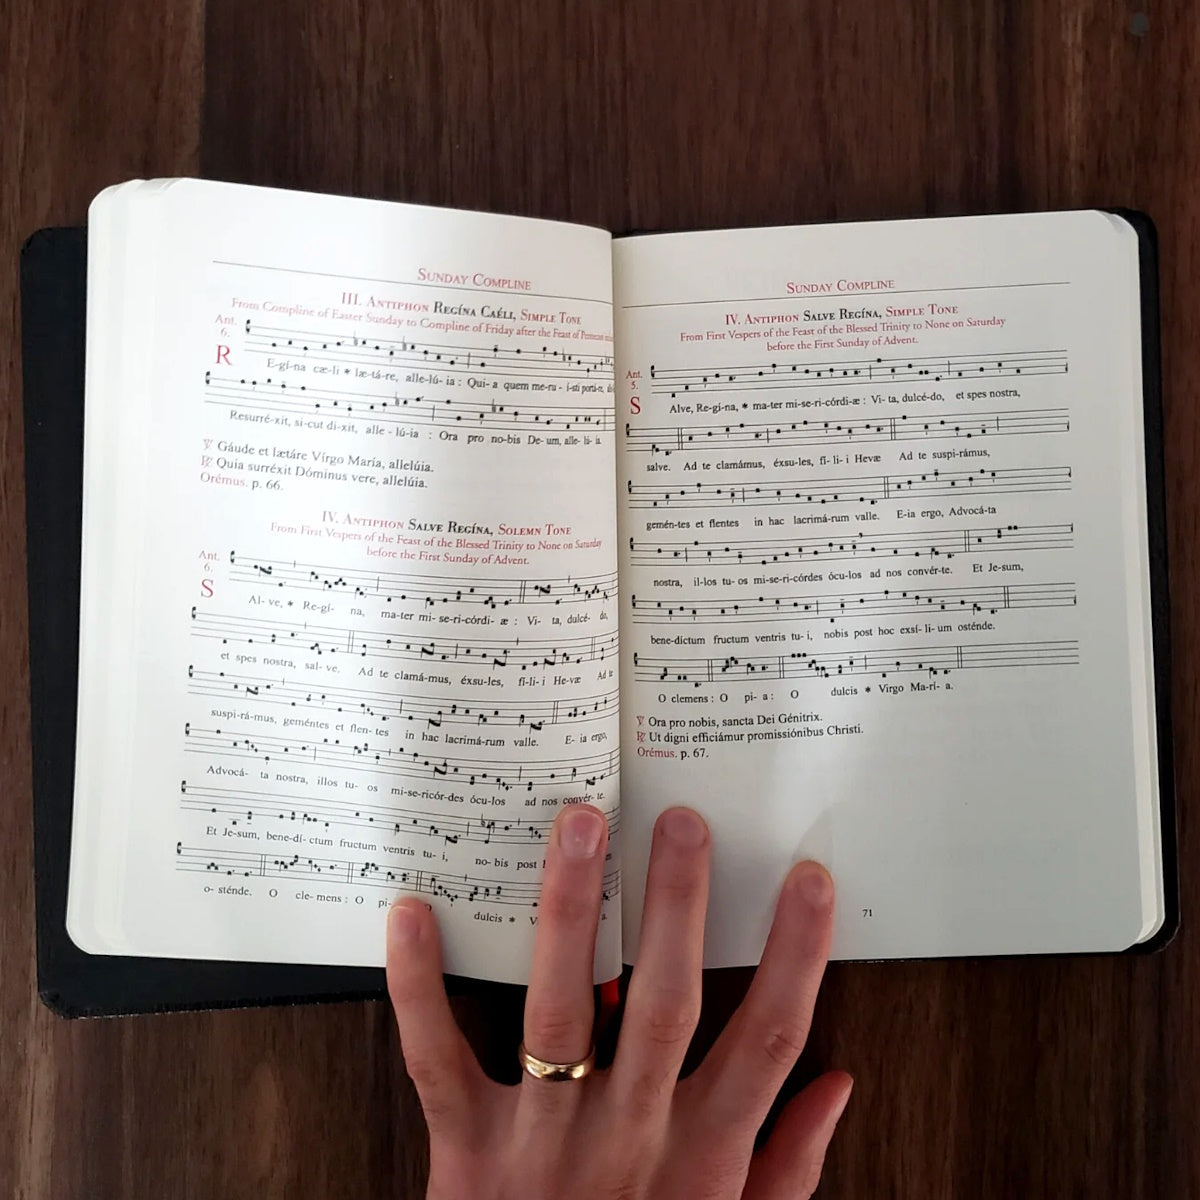 SUNDAY COMPLINE
III. ANTIPHON REGÍNA CAÉLI, SIMPLE TONE
From Compline of Easter Sunday to Compline of Friday after the Feast of Pentecost
Ant.
6.
R E-gí-na cæ-li * læ-tá-re, alle-lú- ia : Qui- a quem me-ru - í-sti portá-re,
Resurré-xit, si-cut di-xit, alle - lú-ia : Ora pro no-bis De- um, alle- lú- ia.
℣ Gáude et lætáre Vírgo María, allelúia.
℟ Quia surréxit Dóminus vere, allelúia.
Orémus. p. 66.
IV. ANTIPHON SALVE REGÍNA, SOLEMN TONE
From First Vespers of the Feast of the Blessed Trinity to None on Saturday
before the First Sunday of Advent.
Ant.
6.
S Al- ve, * Re-gí- na, ma-ter mi- se-ri-córdi- æ : Vi- ta, dulcé- do,
et spes nostra, sal- ve. Ad te clamá-mus, éxsu-les, fí-li- i He-væ Ad te
suspi-rá-mus, geméntes et flen- tes in hac lacrimá-rum valle. E- ia ergo,
Advocá- ta nostra, illos tu- os mi-se-ricór-des ócu-los ad nos convér- te.
Et Je-sum, bene-dí- ctum fructum ventris tu- i, no- bis post
o- sténde. O cle- mens : O pi- O dulcis * V a.
SUNDAY COMPLINE
IV. ANTIPHON SALVE REGÍNA, SIMPLE TONE
From First Vespers of the Feast of the Blessed Trinity to None on Saturday
before the First Sunday of Advent.
Ant.
5.
S Alve, Re-gí-na, * ma-ter mi-se-ri-córdi-æ : Vi- ta, dulcé-do, et spes nostra,
salve. Ad te clamámus, éxsu-les, fí- li- i Hevæ Ad te suspi-rámus,
gemén-tes et flentes in hac lacrimá-rum valle. E-ia ergo, Advocá-ta
nostra, il-los tu- os mi-se-ri-córdes ócu-los ad nos convér-te. Et Je-sum,
bene-dictum fructum ventris tu- i, nobis post hoc exsí- li- um osténde.
O clemens : O pi- a : O dulcis * Virgo Ma-rí- a.
℣ Ora pro nobis, sancta Dei Génitrix.
℟ Ut digni efficiámur promissiónibus Christi.
Orémus. p. 67.
71